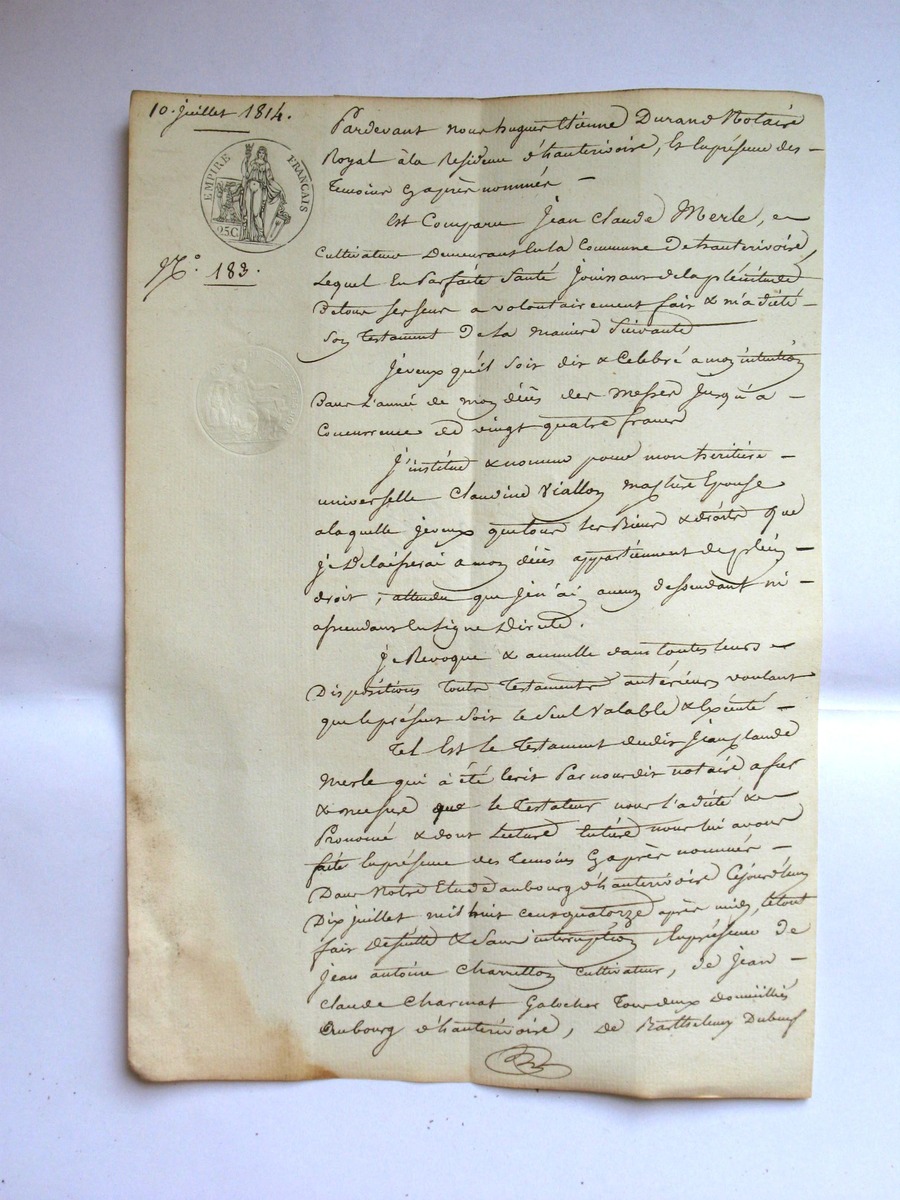 10. juillet 1814.
EMPIRE FRANÇAIS
25C
N.° 183.
Pardevant nous hugues Etienne Durand Notaire
Royal à la Residence d'hauterivoire, & En présence des
Temoins cy après nommés
Est Comparu Jean Claude Merle,
Cultivateur Demeurant En la Commune D'hauterivoire,
Lequel En Parfaite Santé Jouissant de la plénitude
De tous ses sens a volontairement fait & m'a dicté
Son Testament De la maniere Suivante
Je veux qu'il soit dit & Celebré a mon intention
Dans L'année de mon décès des messes Jusqu'à
Concurrence de vingt quatre francs
J'institue & nomme pour mon héritière
universelle Claudine Viallon ma chere Epouse
a laquelle je veux que tous les Biens & droits que
je Delaisserai a mon décès appartiennent de plein
droit, attendu que je n'ai aucun descendant ni
assendant En Ligne Directe.
Je Revoque & annulle dans toutes leurs
Dispositions Tous Testaments antérieurs voulant
que le présent soit le seul Valable & Exécuté
Tel Est le Testament dudit Jean Claude
Merle qui à été Ecrit Par nous dit notaire a fur
& mesure que le Testateur nous l'a dicté &
Prononcé & dont Lecture Entière nous lui avons
faite En présence des Temoins cy après nommés
Dans Notre Etude au bourg d'hauterivoire Cejourd'huy
Dix juillet mil huit cent quatorze après midy, le tout
fait De suitte & sans interruption En présence de
jean antoine Charretton Cultivateur, de Jean
Claude Charmat Galocher Tous deux domiciliés
Au bourg d'hauterivoire, de Barthelemy Dubeuf